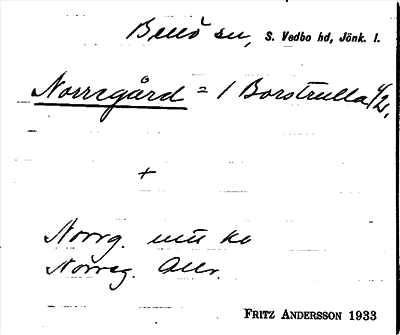 Bellö sn, S. Vedbo hd, Jönk. l.
Norregård = 1 Borstrulla 1/2,
+
Norrg. utt ko
Norreg. Allr.
FRITZ ANDERSSON 1933